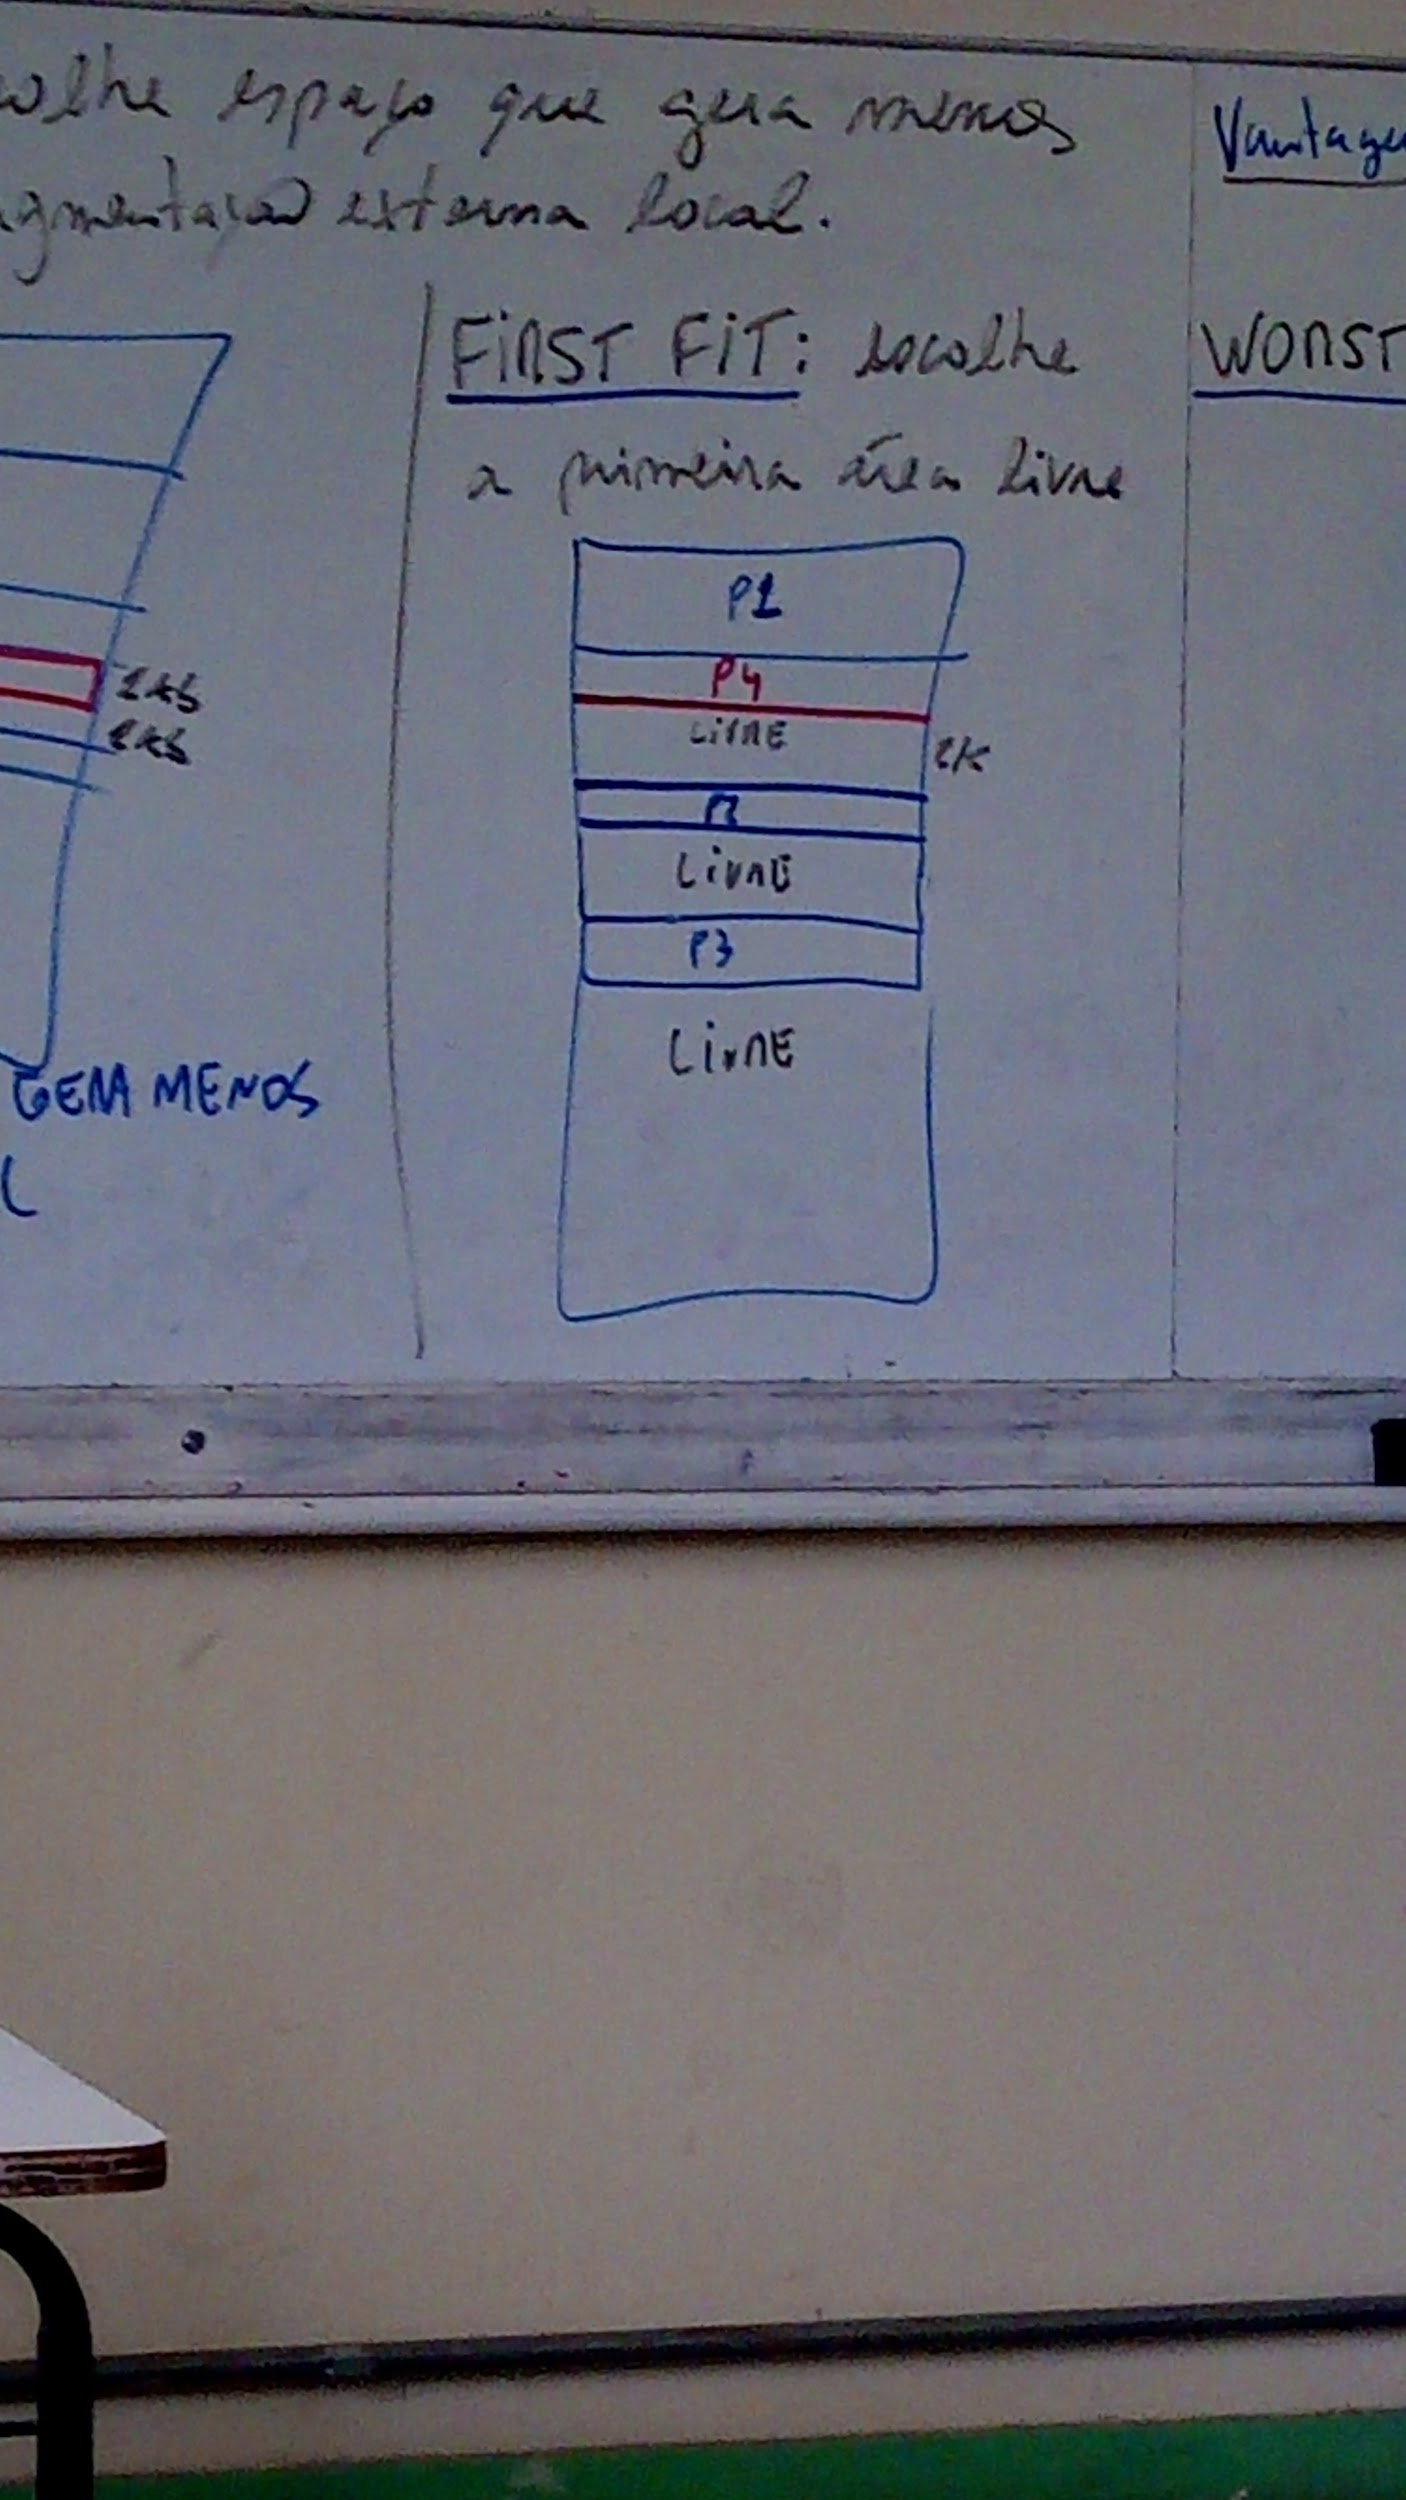 colhe espaço que gera menos
agmentação externa local.
1kb
2kb
GERA MENOS
L
FIRST FIT: escolhe
a primeira área livre
P1
P4
LIVRE
2k
P2
LIVRE
P3
LIVRE
Vantage
WORST